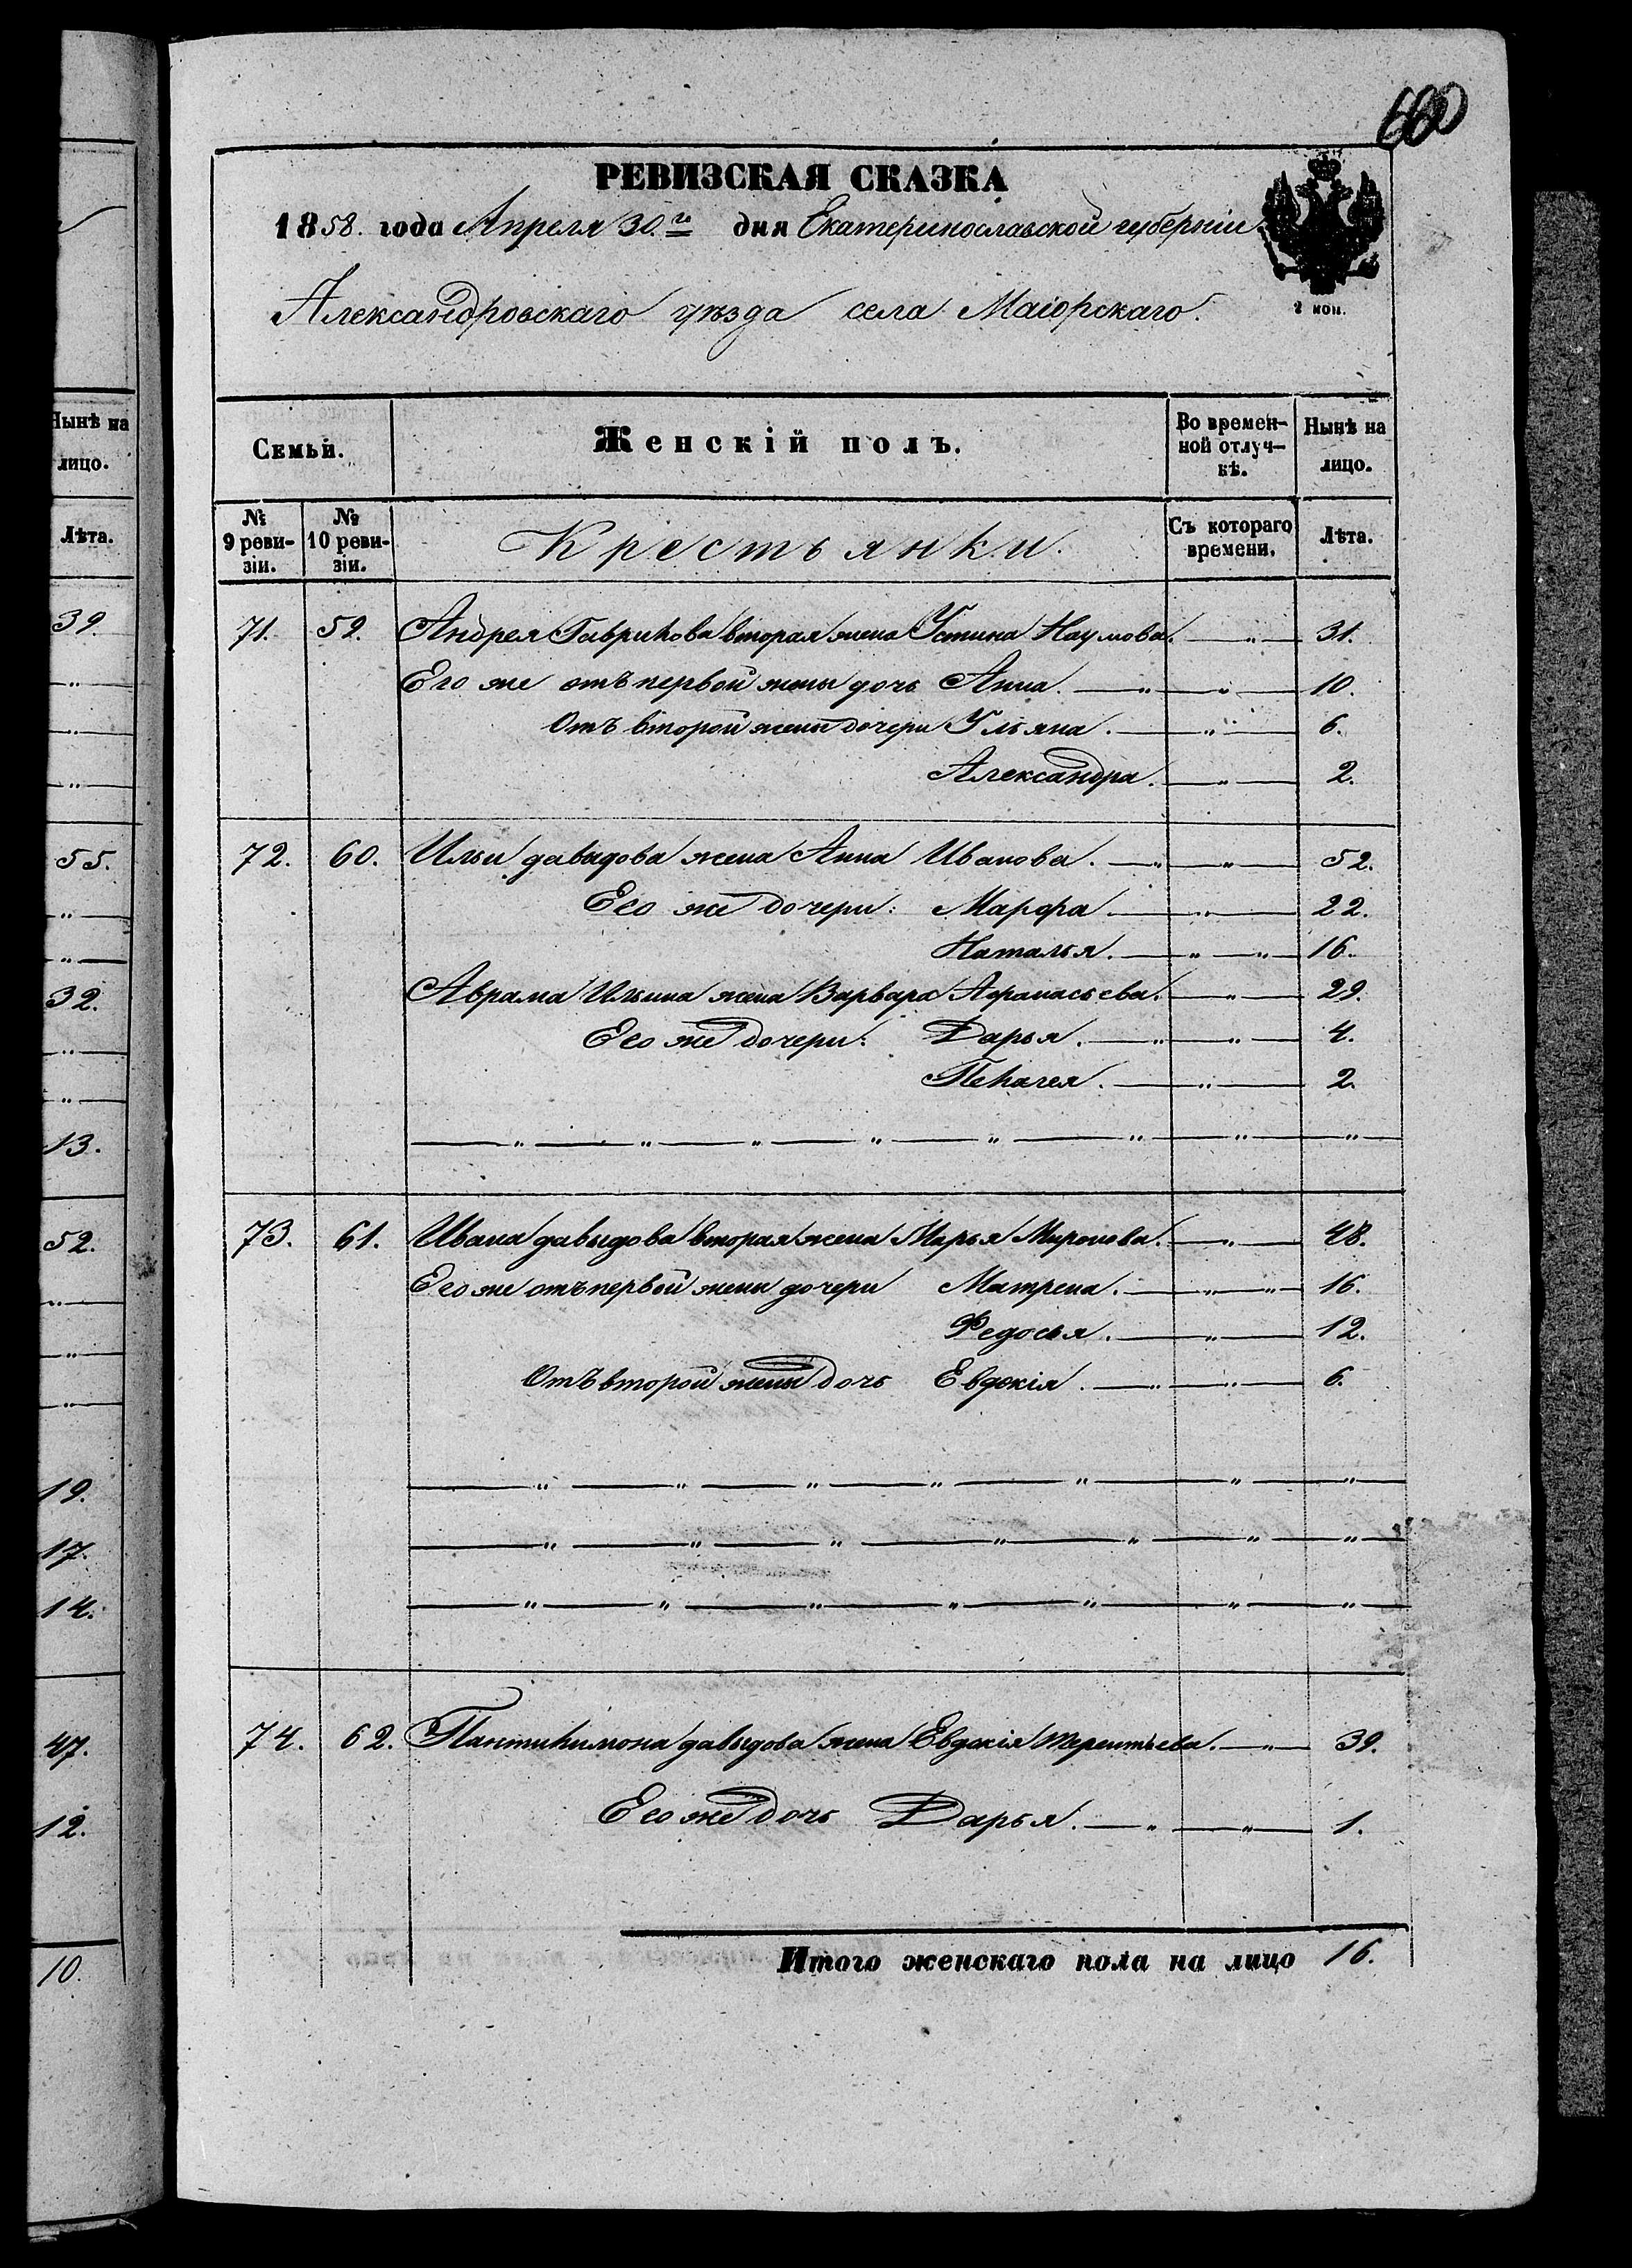 660
РЕВИЗСКАЯ СКАЗКА
1858. года Апреля 30.го дня Екатеринославской губерніи
Александровскаго уѣзда села Маіорскаго.
2 коп.
Семьи. Женскій полъ. Во времен-ной отлуч-кѣ. Нынѣ на лицо.
№ 9 реви-зіи. № 10 реви-зіи. Крестьянки. Съ котораго времени. Лѣта.
71. 59. Андрея Гаврилова вторая жена Устина Наумова. — „ — 31.
Его же отъ первой жены дочь Анна. — „ — „ — 10.
Отъ второй жены дочери Ульяна. — „ — 6.
Александра. — „ — 2.
72. 60. Ильи давыдова жена Анна Иванова. — „ — „ — 52.
Его же дочери: Марфа — „ — 22.
Наталья. — „ — „ — 16.
Аврама Ильина жена Варвара Афанасьева. — „ — 29.
Его же дочери: Дарья. — „ — „ — 4.
Пелагея. — „ — 2.
— „ — „ — „ — „ — „ — „ — „ — „
73. 61. Ивана давыдова вторая жена Марья Миронова. — „ — 48.
Его же отъ первой жены дочери Матрена. — „ — „ — 16.
Федосья. — „ — 12.
Отъ второй жены дочь Евдокія. — „ — „ — 6.
— „ — „ — „ — „ — „ — „ — „
— „ — „ — „ — „ — „ — „ — „
— „ — „ — „ — „ — „ — „ — „
74. 62. Пантилимона давыдова жена Евдокія терентьева. — „ — 39.
Его же дочь Дарья. — „ — „ — 1.
Итого женскаго пола на лицо 16.
Нынѣ на
лицо.
Лѣта.
39.
„
„
„
55.
„
„
32.
„
„
13.
52.
„
„
„
19.
17.
14.
47.
12.
10.